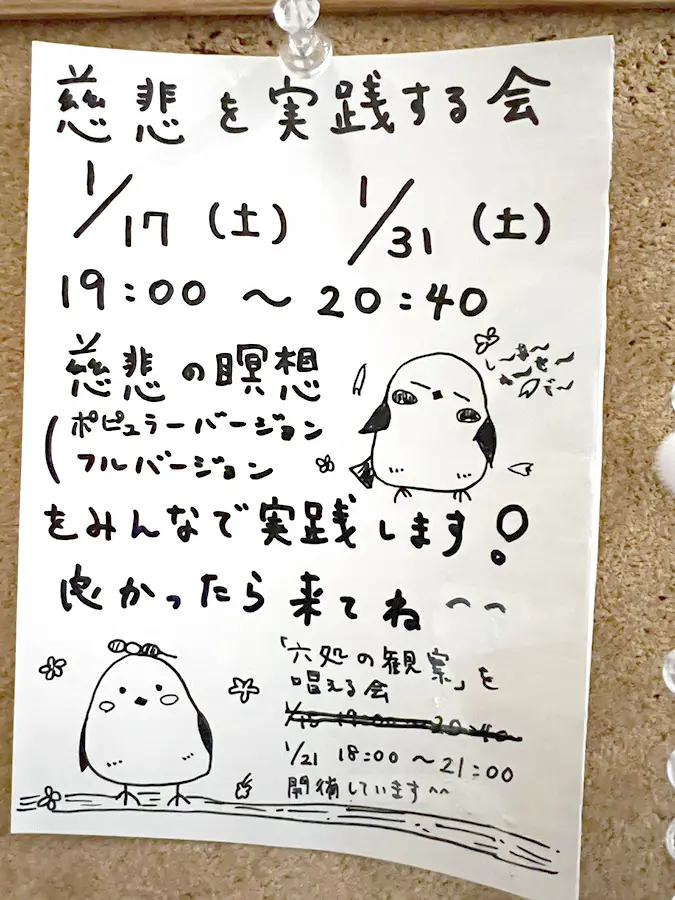 慈悲を実践する会
1/17(土) 1/31(土)
19:00 ～ 20:40
慈悲の瞑想
(ポピュラーバージョン
フルバージョン
をみんなで実践します!
良かったら来てね^^
しーあーせー
なーでー
「六処の観察」を
唱える会
1/21 18:00 ～21:00
開催しています^^